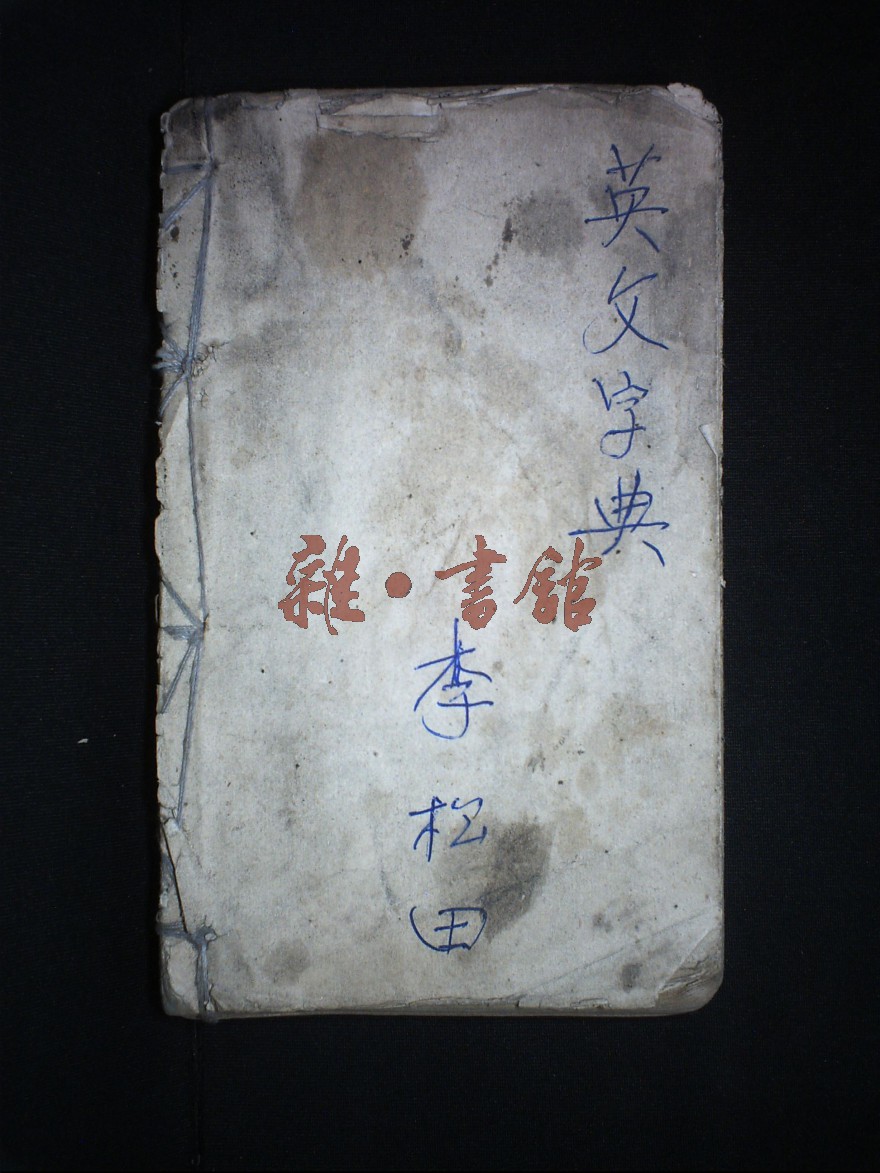 英文字典
雜·書館
李松田